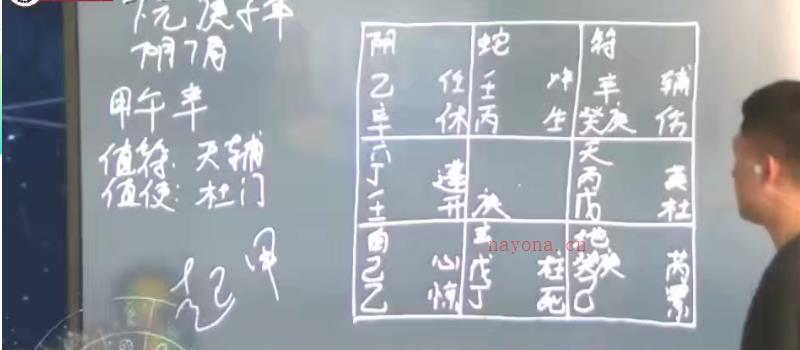 下元庚子年
阴7局
甲午 辛
值符:天辅
值使:杜门
起 甲
己
阴 蛇 符
乙 任 壬 冲 辛 辅
辛 休 丙 生 癸庚 伤
六 天
丁 蓬 丙 英
壬 开 庚 戊 杜
白 玄 地
己 心 戊 柱 癸庚 芮
乙 惊 丁 死 己 景
nayona.cn